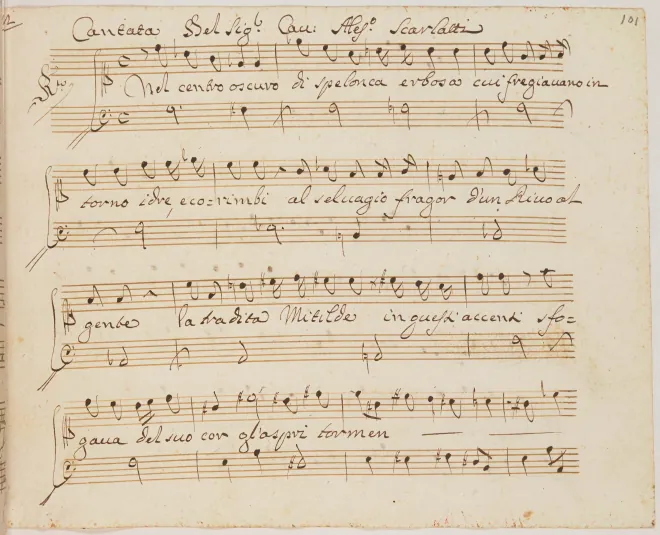 Cantata Del Sig.r Cav: Aless.o Scarlatti
101
Nel centro oscuro di spelonca erbosa cui fregiavano in
torno idre, e co=rimbi al selvagio fragor d'un Rivo al
gente la tradita Mitilde in questi accenti sfo=
gava del suo cor gl'aspri tormen